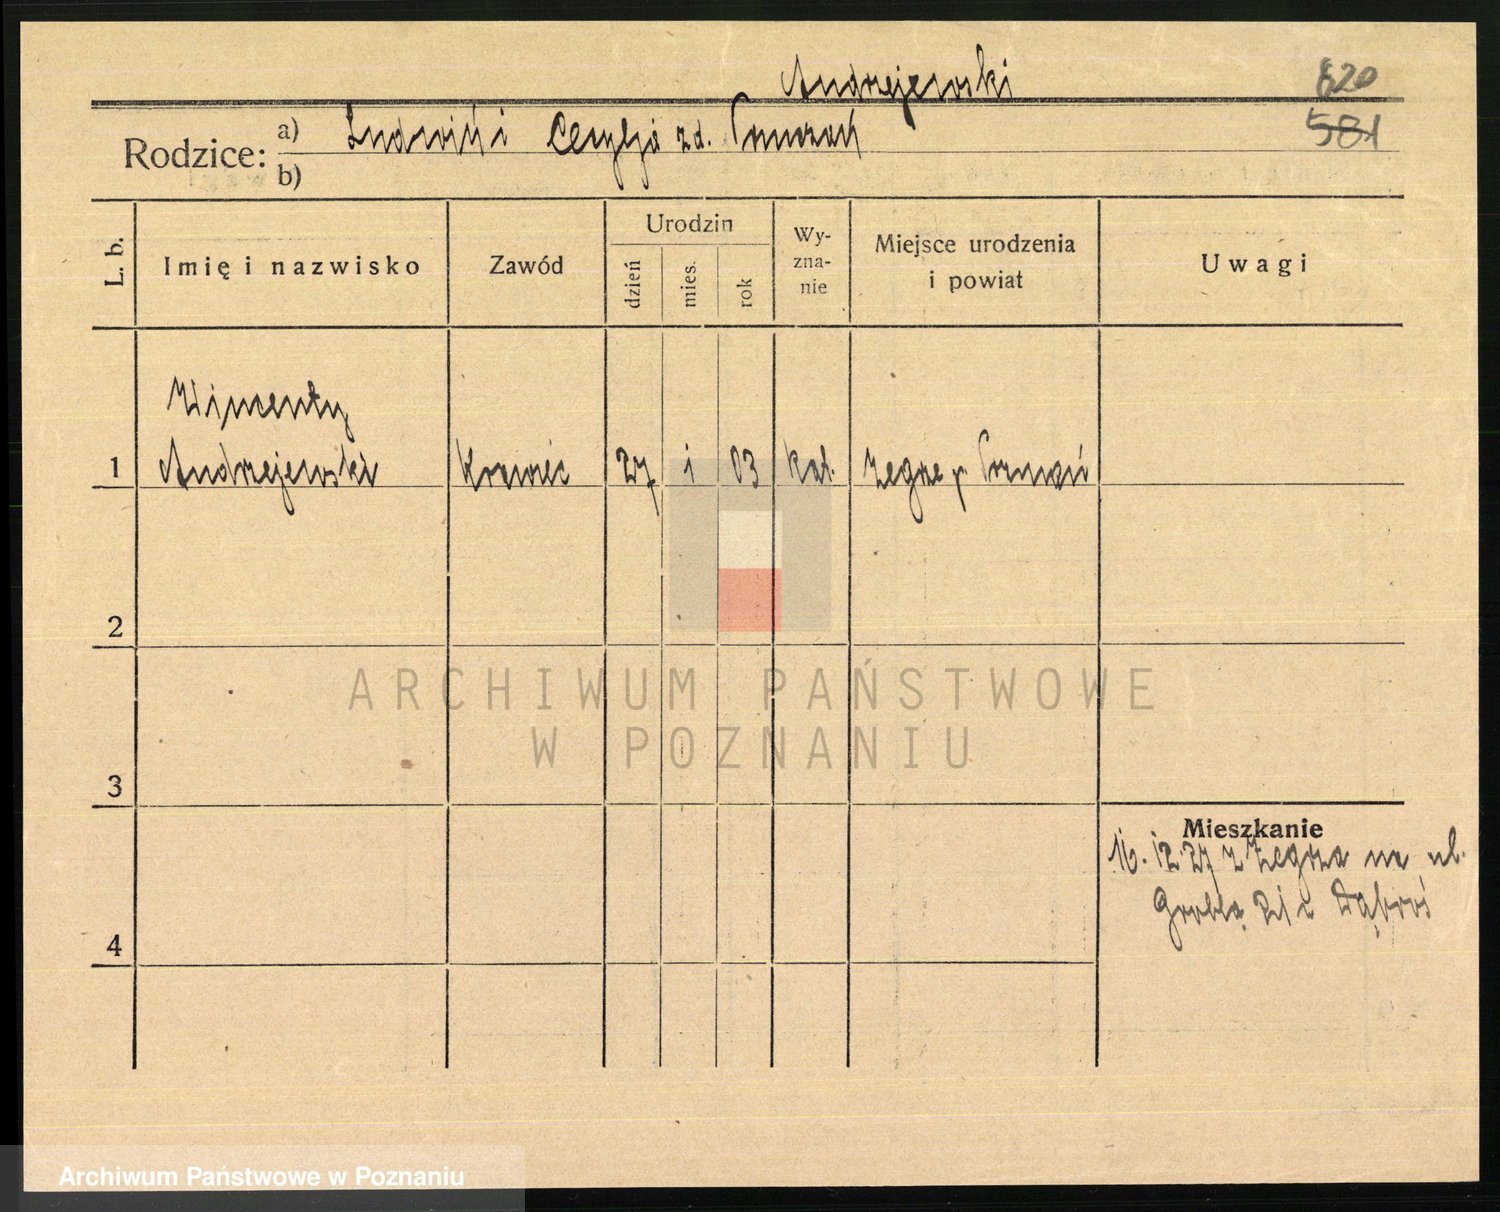 Andrzejewski
620
581
Rodzice: a) Ludwik i Cecylja zd.
b)
L. b.
Imię i nazwisko
Zawód
Urodzin
dzień
mies.
rok
Wy-
zna-
nie
Miejsce urodzenia
i powiat
Uwagi
Wincenty
1 Andrzejewski krawiec 27 1 03 kat. Żegrze p. Poznań
2
3
4
Mieszkanie
16. 12. 27 z Żegrza na ul.
Groblą
ARCHIWUM PAŃSTWOWE
W POZNANIU
Archiwum Państwowe w Poznaniu